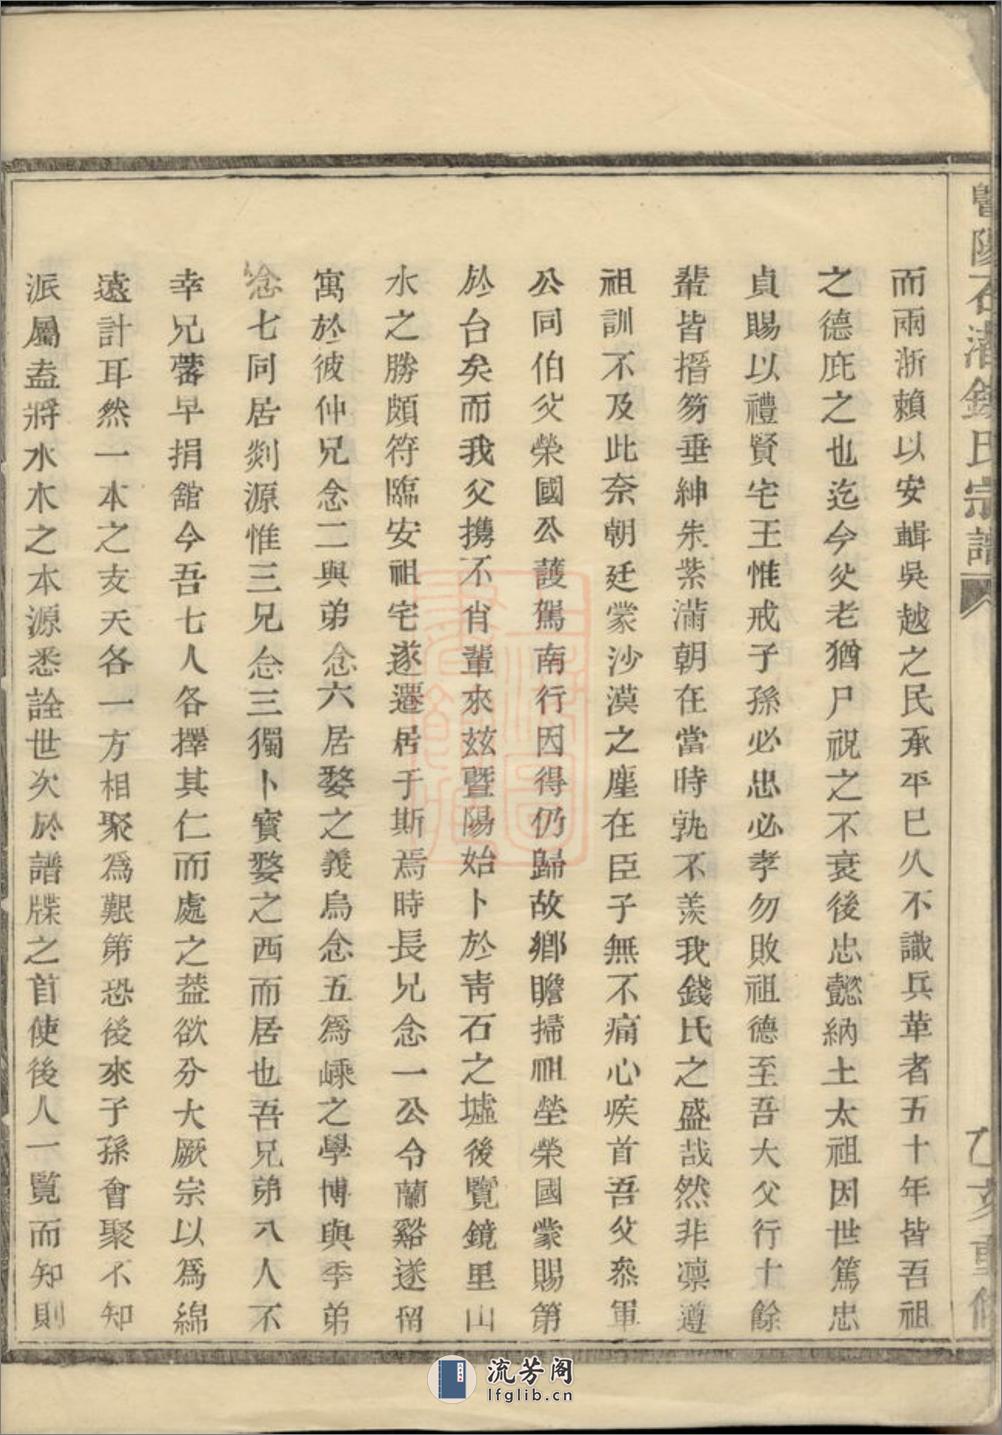 暨陽石渚錢氏宗譜
乙亥重修
而兩浙賴以安輯吳越之民承平已久不識兵革者五十年皆吾祖
之德庇之也迄今父老猶尸祝之不衰後忠懿納土太祖因世篤忠
貞賜以禮賢宅王惟戒子孫必忠必孝勿敗祖德至吾大父行十餘
輩皆搢笏垂紳朱紫滿朝在當時孰不羨我錢氏之盛哉然非凜遵
祖訓不及此奈朝廷蒙沙漠之塵在臣子無不痛心疾首吾父叅軍
公同伯父榮國公護駕南行因得仍歸故鄉瞻掃祖塋榮國蒙賜第
於台矣而我父攜不肖輩來玆暨陽始卜於靑石之墟後覽鏡里山
水之勝頗符臨安祖宅遂遷居于斯焉時長兄念一公令蘭谿遂留
寓於彼仲兄念二與弟念六居婺之義烏念五爲嵊之學博與季弟
念七同居剡源惟三兄念三獨卜實婺之西而居也吾兄弟八人不
幸兄蕃早捐舘今吾七人各擇其仁而處之葢欲分大厥宗以爲綿
遠計耳然一本之支天各一方相聚爲艱第恐後來子孫會聚不知
派屬盍將水木之本源悉詮世次於譜牒之首使後人一覽而知則
流芳阁
lfglib.cn